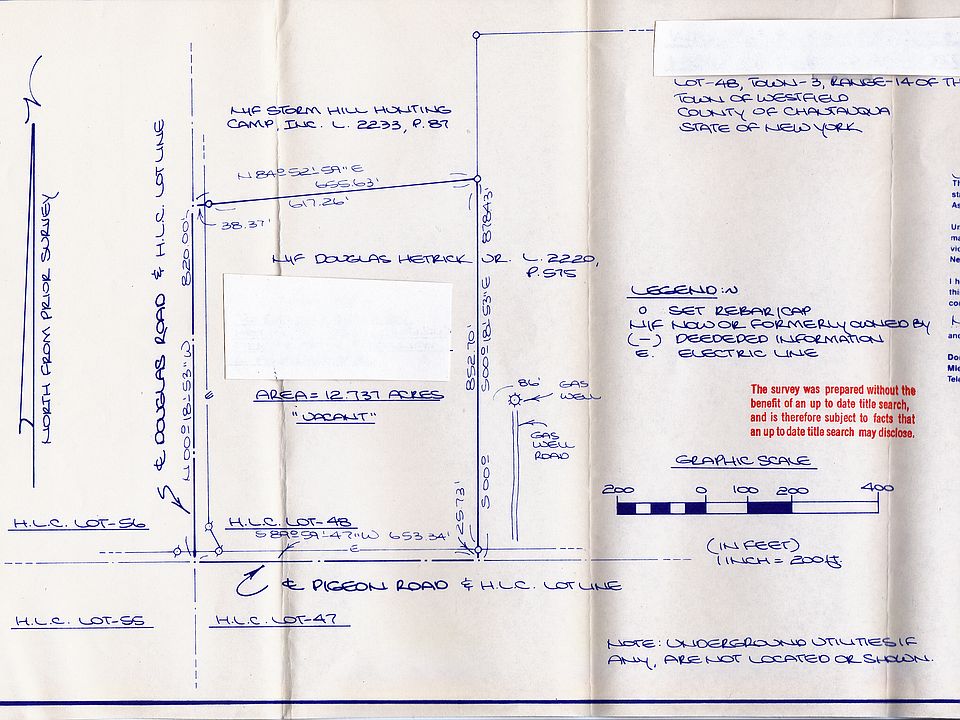 LOT-48, TOWN-3, RANGE-14 OF TH
TOWN OF WESTFIELD
COUNTY OF CHAUTAUQUA
STATE OF NEW YORK
N/F STORM HILL HUNTING
CAMP, INC. L. 2233, P. 87
N 84° 52' 59" E
655.63'
617.26'
38.37'
N/F DOUGLAS HETRICK JR. L. 2220,
P. 575
NORTH FROM PRIOR SURVEY
℄ DOUGLAS ROAD & H.L.C. LOT LINE
N 00° 18' 53" W 820.00'
852.70'
S 00° 18' 53" E 878.43'
S 00°
25.73'
AREA = 12.737 ACRES
"VACANT"
86' GAS
WELL
GAS
WELL
ROAD
E
LEGEND:~
o SET REBAR/CAP
N/F NOW OR FORMERLY OWNED BY
(—) DEEDEDED INFORMATION
E. ELECTRIC LINE
The survey was prepared without the
benefit of an up to date title search,
and is therefore subject to facts that
an up to date title search may disclose.
GRAPHIC SCALE
200 0 100 200 400
(IN FEET)
1 INCH = 200 ft.
H.L.C. LOT-56
H.L.C. LOT-48
S 89° 59' 47" W 653.34'
E
℄ PIGEON ROAD & H.L.C. LOT LINE
H.L.C. LOT-55
H.L.C. LOT-47
NOTE: UNDERGROUND UTILITIES IF
ANY, ARE NOT LOCATED OR SHOWN.
Th
sta
As
Un
ma
vic
Ne
I h
this
co
and
Do
Mic
Tel